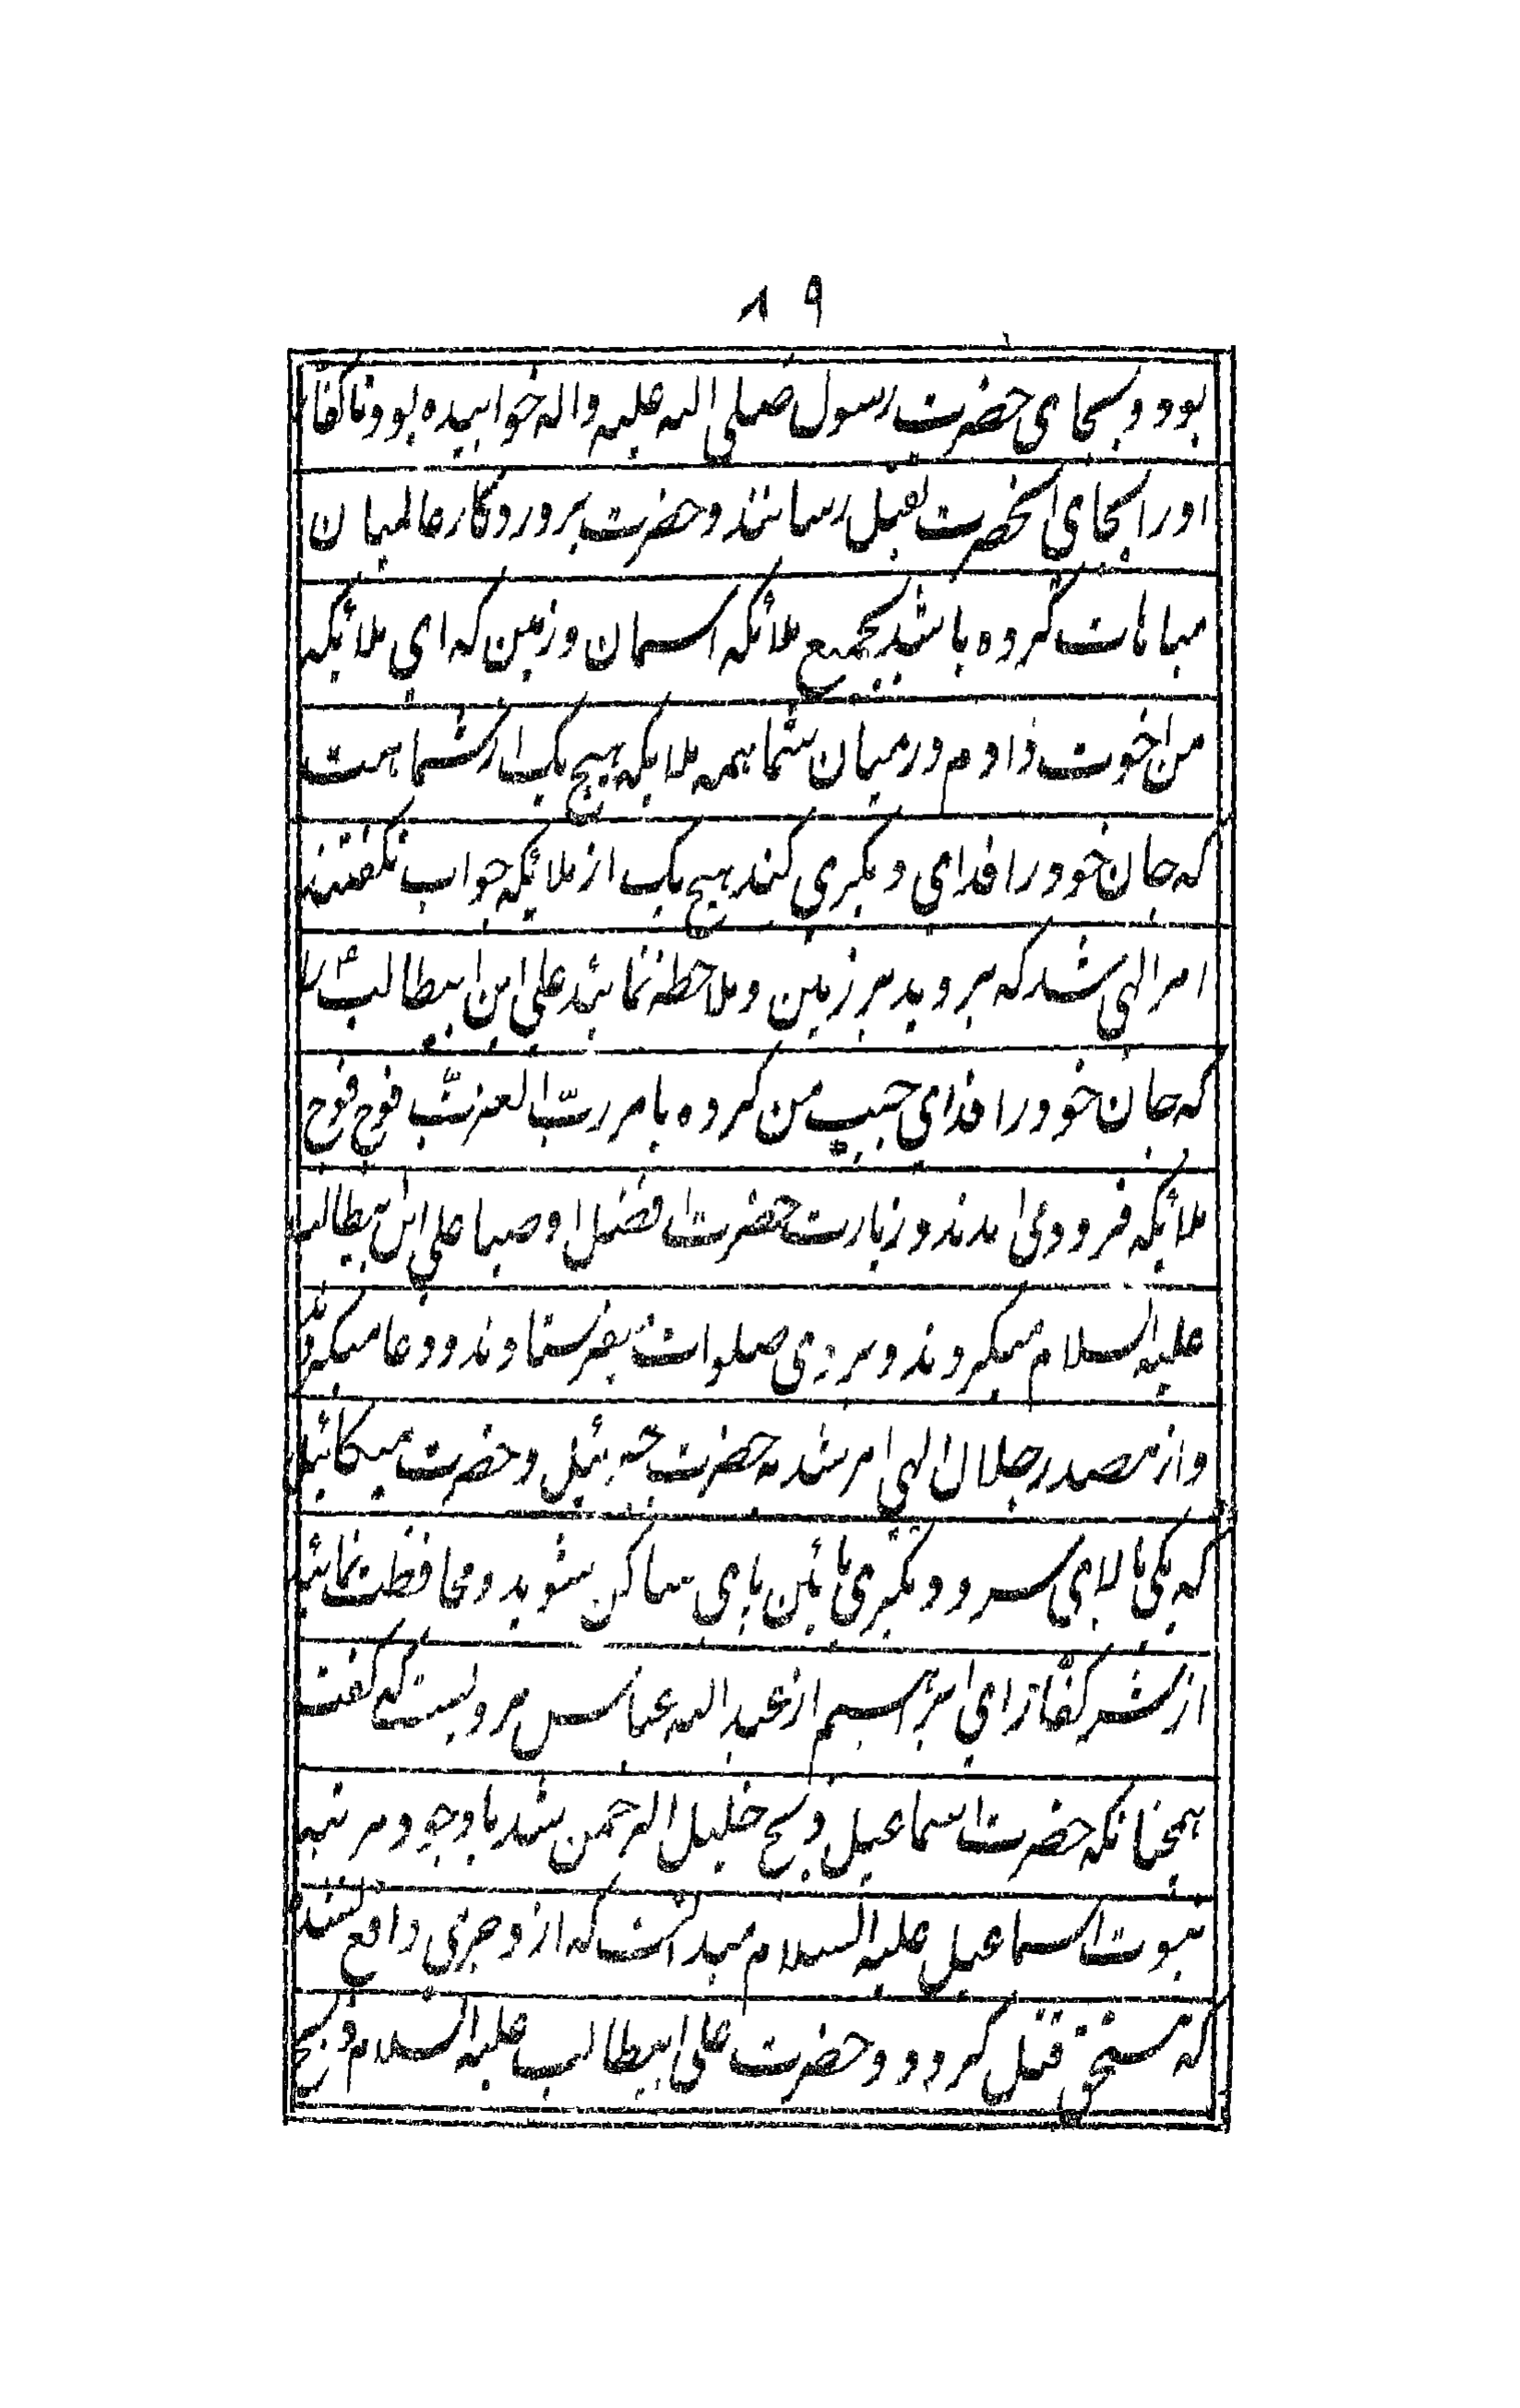 ۸۹
بود و بجای حضرت رسول صلی الله علیه واله خوابیده بود تا کفار
اورا بجای انحضرت بقتل رسانند و حضرت پروردگار عالمیان
مباهات کرده باشد بجمیع ملائکه اسمان و زمین که ای ملائکه
من اخوت دادم در میان شما همه ملایکه هیچ یک از شما هست
که جان خود را فدای دیگری کند هیچ یک از ملایکه جواب نگفتند
امر الهی شد که بروید بر زمین و ملاحظه نمائید علی ابن ابیطالب را
که جان خود را فدای حبیب من کرده بامر ربّ العزتّ فوج فوج
ملائکه فرود می امدند و زیارت حضرت افضل اوصیا علی ابن ابیطالب
علیه السلام میکردند و بر وی صلوات میفرستادند و دعا میکردند
و از مصدر جلال الهی امر شد به حضرت جبرئیل و حضرت میکائیل
که یکی بالای سر و دیگری پائین پای ساکن شوید و محافظت نمائید
از شر کفار ای ابراهیم از عبد الله عباس مرویست که گفت
همچنانکه حضرت اسماعیل ذبیح خلیل الرحمن شد با وجود مرتبه
نبوت اسماعیل علیه السلام میدانست که از و جرمی واقع نشده
که مستحق قتل گردد و حضرت علی ابیطالب علیه السلام ذبیح